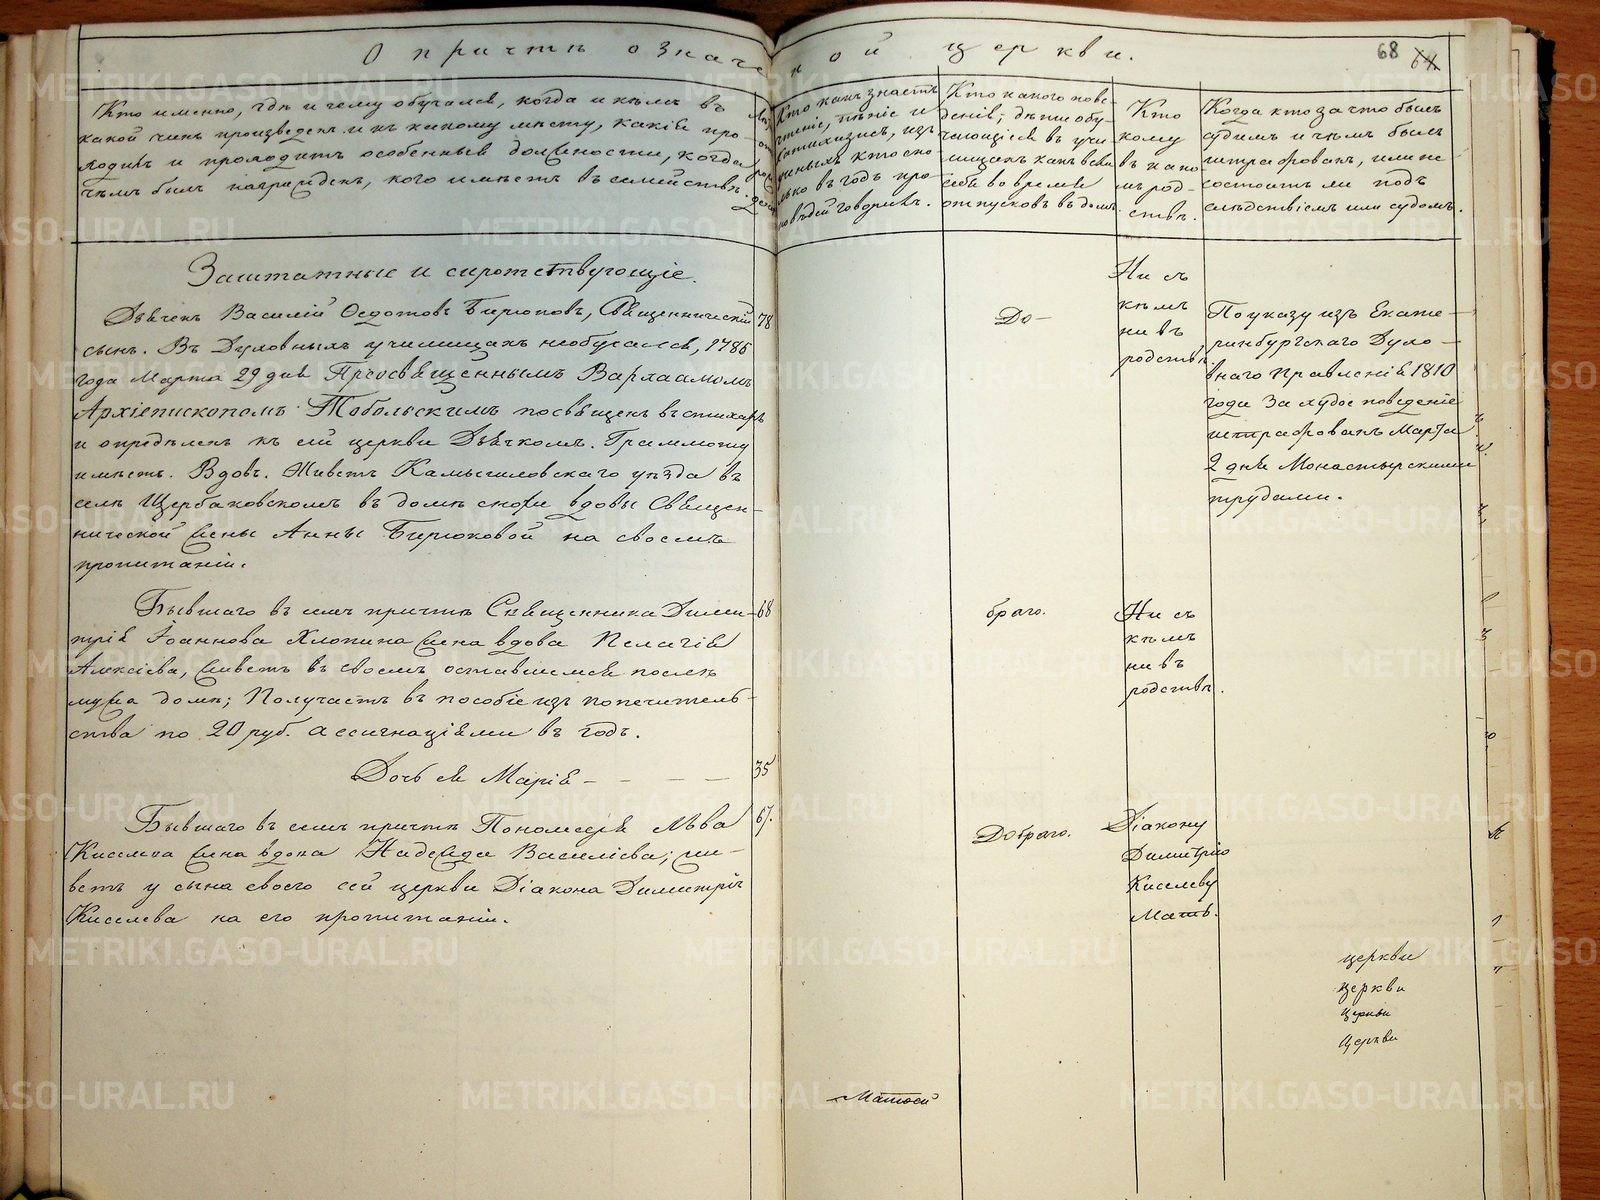 О причтѣ означе
ной церкви.
68 64
Кто именно, гдѣ и чему обучался, когда и кѣмъ въ
какой чинъ произведенъ и къ какому мѣсту, какія про-
ходилъ и проходитъ особенныя должности, когда
чѣмъ былъ награжденъ, кого имѣетъ въ семействѣ.
Кто какъ знаетъ
чтеніе, пѣніе и
катихизисъ, изъ
ученыхъ кто ско
лько въ годъ про-
повѣдей говорилъ.
Кто какого пове-
денія; дѣти обу-
чающіеся въ учи
лищахъ какъ вели
себя во время
отпусковъ въ домъ
Кто
кому
въ како
мъ род-
ствѣ.
Когда кто за что былъ
судимъ и чѣмъ былъ
штрафованъ, или не
состоитъ ли подъ
слѣдствіемъ или судомъ.
Заштатные и сиротствующіе.
Дьячекъ Василій Ѳедотовъ Бирюковъ, Священническій 78
сынъ. Въ Духовныхъ училищахъ необучался, 1786
года Марта 29 дня Преосвященнымъ Варлаамомъ
Архіепископомъ Тобольскимъ посвященъ въ стихарь
и опредѣленъ къ сей церкви Дьячкомъ. Граммоту
имѣетъ. Вдовъ. Живетъ Камышловскаго уѣзда въ
селѣ Щербаковскомъ въ домѣ снохи вдовы Священ-
нической жены Анны Бирюковой на своемъ
пропитаніи.
До-
Ни съ
кѣмъ
ни въ
родствѣ
По указу изъ Екате-
ринбургскаго Духо-
внаго Правленія 1810
года за худое поведеніе
штрафованъ Марта
2 дня Монастырскими
трудами.
Бывшаго въ семъ причтѣ Священника Дими- 68
трія Іоаннова Хлопина жена вдова Пелагія
Алексіева, живетъ въ своемъ оставшемся послѣ
мужа домѣ; Получаетъ въ пособіе изъ попечитель-
ства по 20 руб. ассигнаціями въ годъ.
Дочь ея Марія - - - - 35
браго.
Ни съ
кѣмъ
ни въ
родствѣ.
Бывшаго въ семъ причтѣ Пономаря Льва 67.
Киселева жена вдова Надежда Василіева; жи-
ветъ у сына своего сей церкви Діакона Димитрія
Киселева на его пропитаніи.
Добраго.
Діакону
Димитрію
Киселеву
Мать.
церкви
церкви
церкви
церкви
METRIKI.GASO-URAL.RU